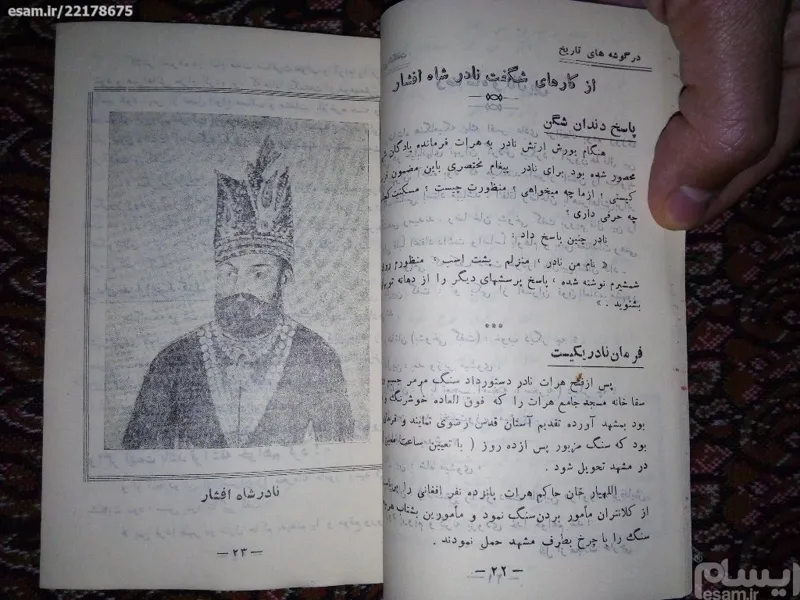 esam.ir/22178675
در گوشه های تاریخ
از کارهای شگفت نادر شاه افشار
پاسخ دندان شگن
هنگام یورش ارتش نادر به هرات فرمانده پادگان
محصور شده بود برای نادر پیغام مختصری باین مضمون
کیستی ؟ ازما چه میخواهی ؟ منظورت چیست ؟ مسکنت
چه حرفی داری ؟
نادر چنین پاسخ داد :
« نام من نادر ، منزلم ، پشت اسب ، منظورم
شمشیرم نوشته شده ، پاسخ پرسشهای دیگر را از دهانه
بشنوید . »
***
فرمان نادر یکیست
پس از فتح هرات نادر دستورداد سنگ مرمر
سقا خانه مسجد جامع هرات را که فوق العاده خوشرنگ
بود بمشهد آورده تقدیم آستان قدس رضوی نمایند و
بود که سنگ مزبور پس ازده روز ( با تعیین ساعت
در مشهد تحویل شود .
اللهیار خان حاکم هرات پانزده نفر افغانی را
از کلانتران مأمور بردن سنگ نمود و مأمورین بشتاب
سنگ را با چرخ بطرف مشهد حمل نمودند .
— ۲۲ —
نادر شاه افشار
— ۲۳ —
ایسام
esam.ir